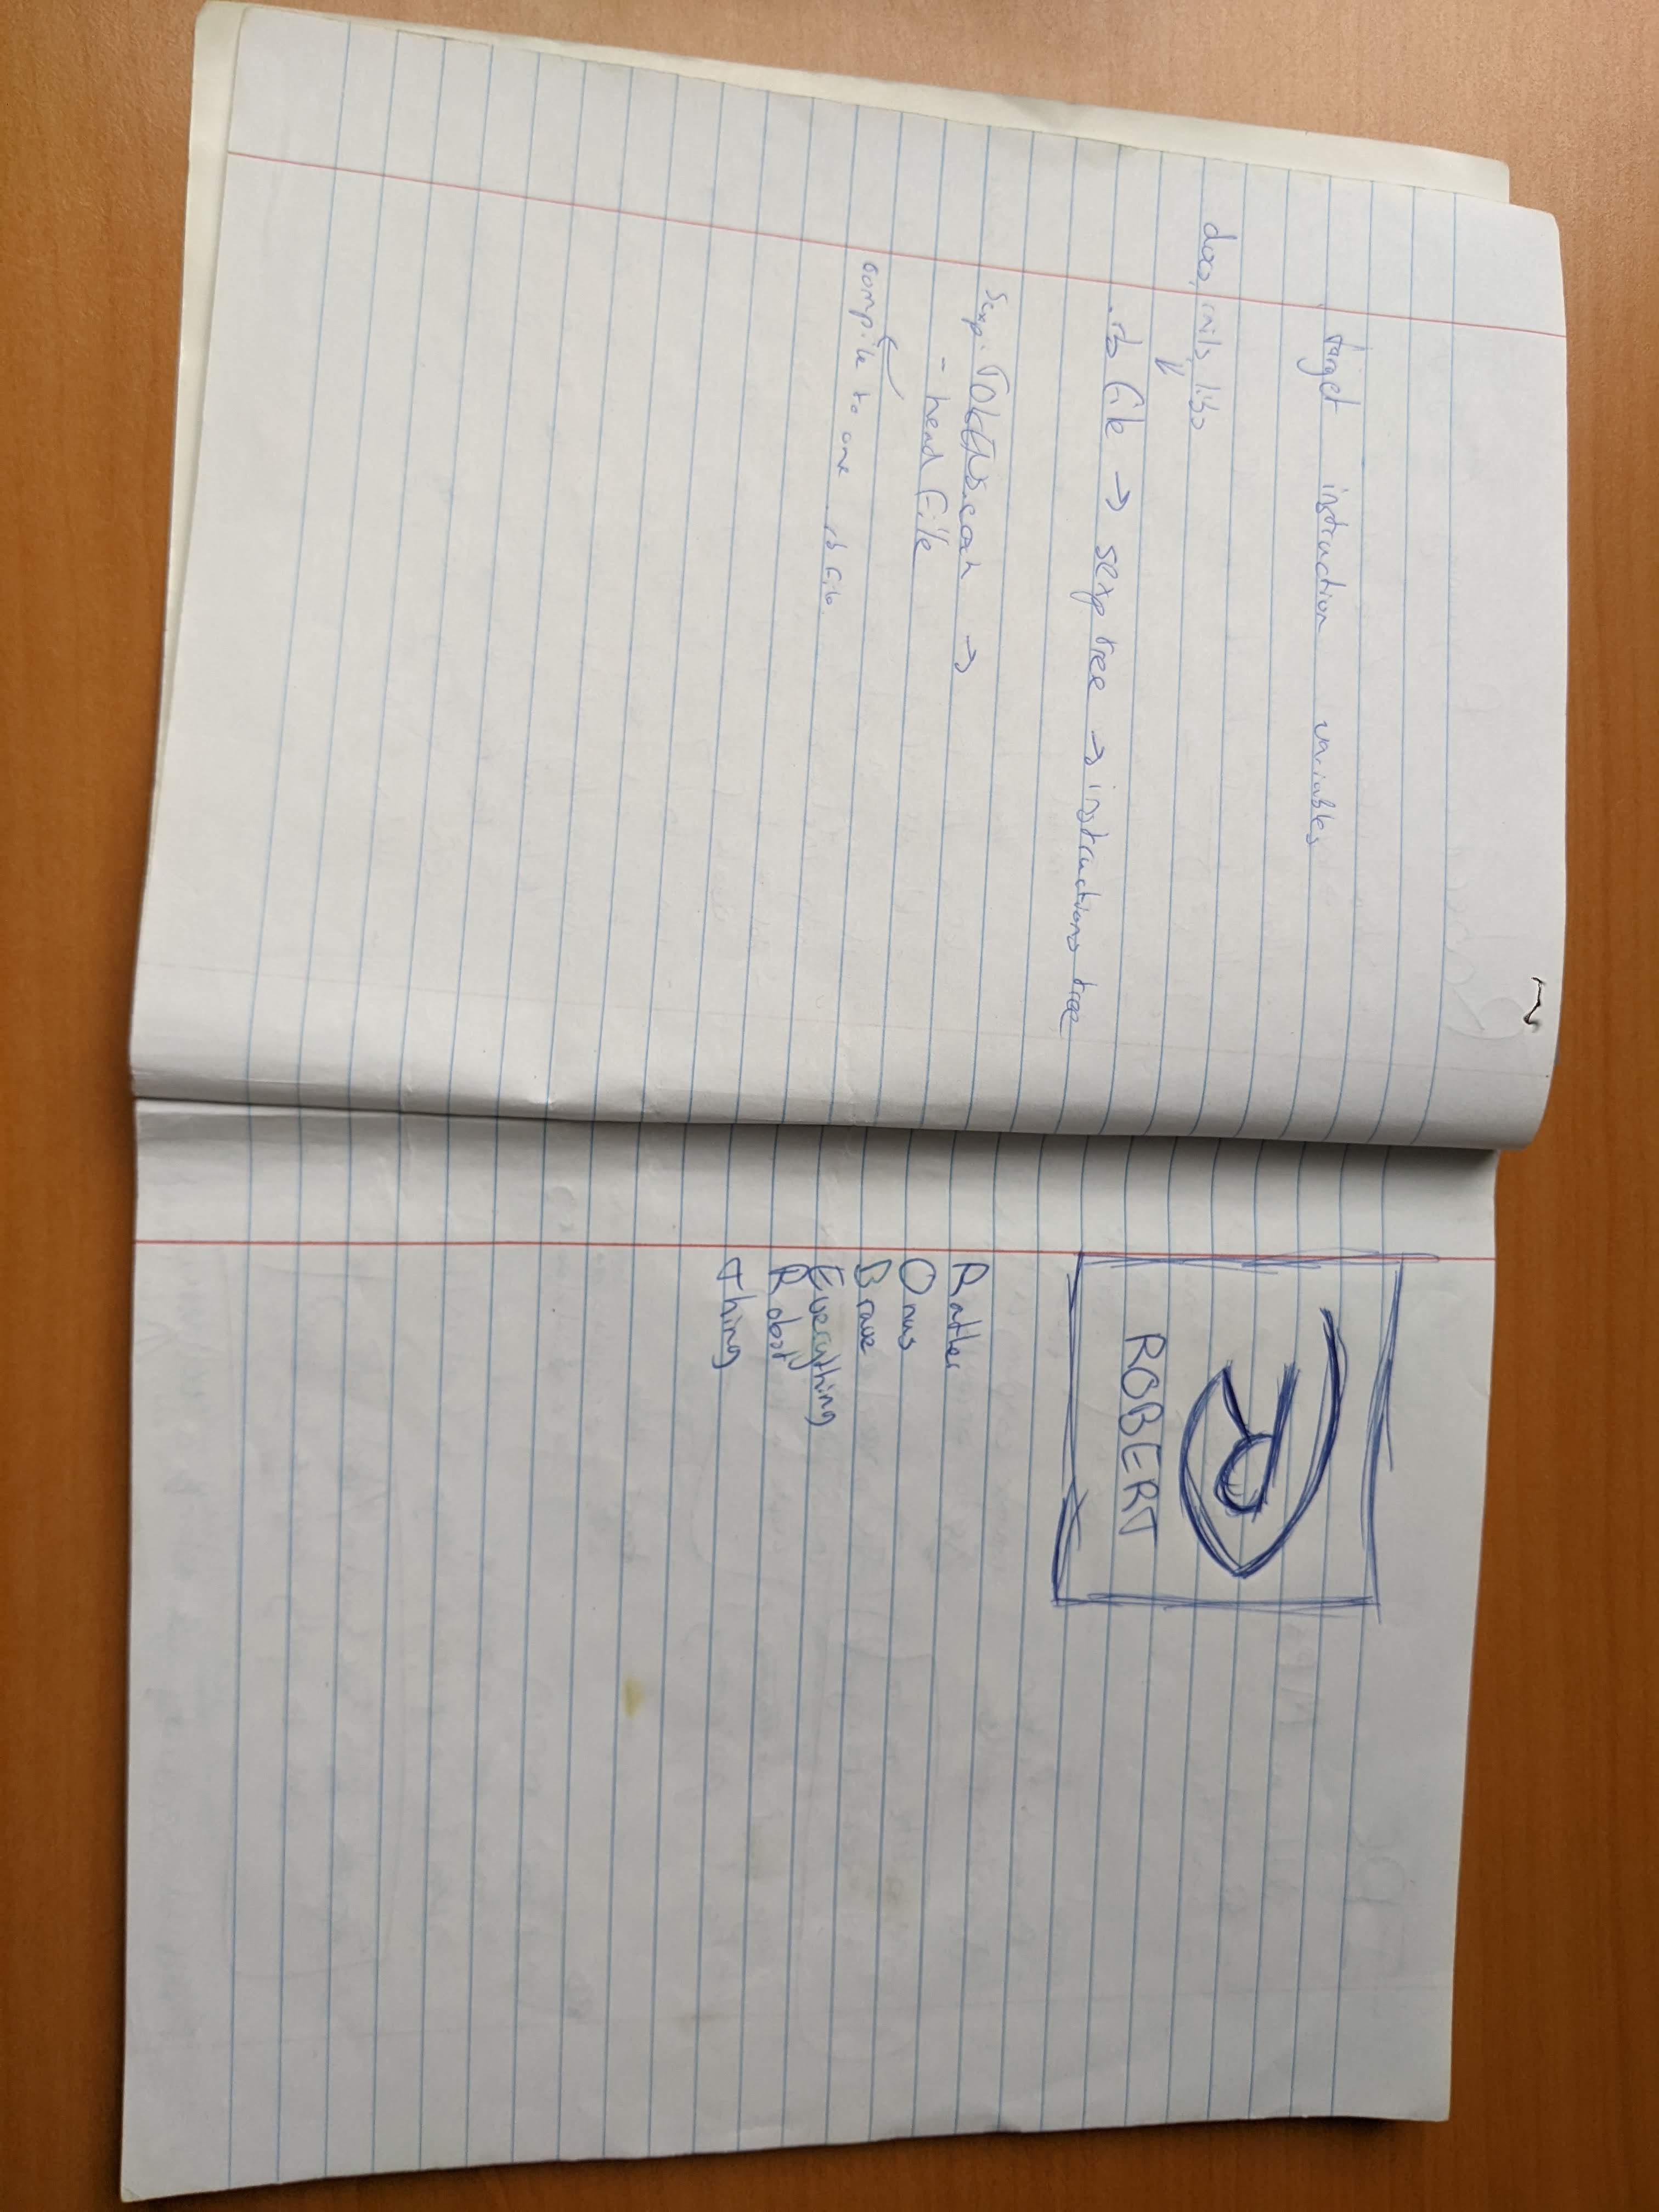 target instruction variables
docs, inits, libs
.rb file → sexp tree → instructions tree
sexp. TOKENS.each →
- head file
compile to one rb file
R
ROBERT
Rather
Onus
Brave
Everything
Robot
Thing